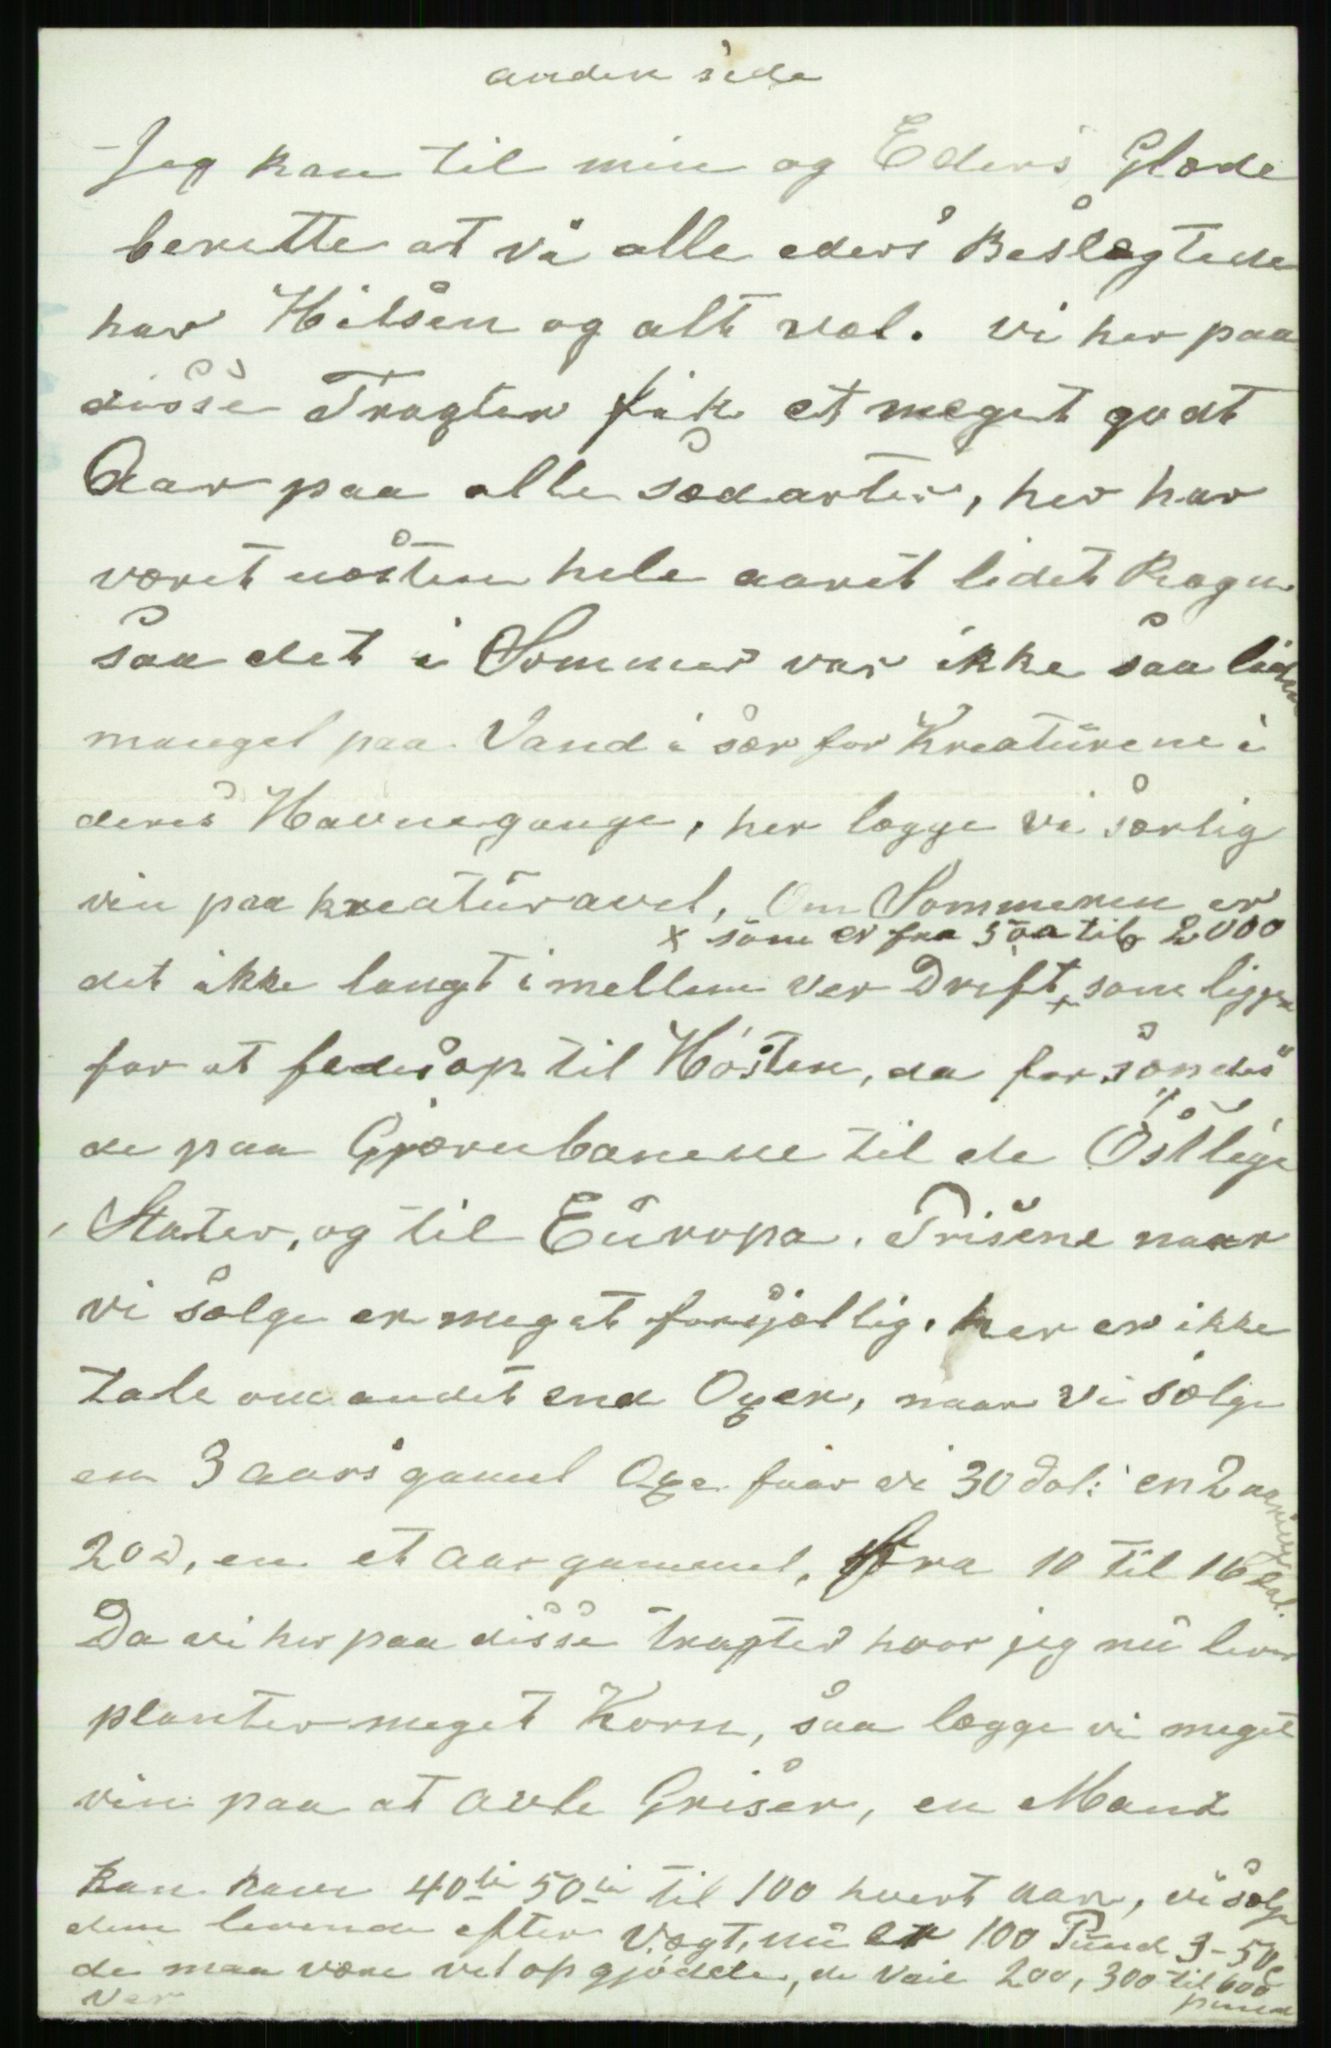 anden side
Jeg kan til min og Eders Glæde
berette at vi alle eders Beslægtede
har Hilsen og alt vel. vi her paa
disse Tragter fik et meget godt
Aar paa alle sædarter, her har
været næsten hele aaret lidet Regn
saa det i Sommer var ikke saa liden
mangel paa Vand i sær for Kreaturene i
deres Havnegange, her lægge vi særlig
vin paa kreaturavel, Om Sommeren er
x som er fra 500 til 2000
det ikke langt imellem ver Drift x som ligger
for at fedes op til Høsten, da forsendes
de paa Gjærnbanene til de Østlige
Stater, og til Europa. Prisene naar
vi sælge er meget forsjællig. her er ikke
tale om andet end Oxer, naar vi sælge
en 3 aars gamel Oxe faar vi 30 dol: en 2 aaring
20 d, en et aar gammel, fra 10 til 16 Dal.
Da vi her paa disse tragter hvor jeg nu lever
planter meget Korn, saa lægge vi meget
vin paa at avle Griser, en Mand
kan have 40ti 50ti til 100 hvert aar, vi sælge
dem levende efter Vægt, nu er 100 Pund 3-50c
de maa være vel opgjødde, de vaie 200, 300 til 600
ver pund